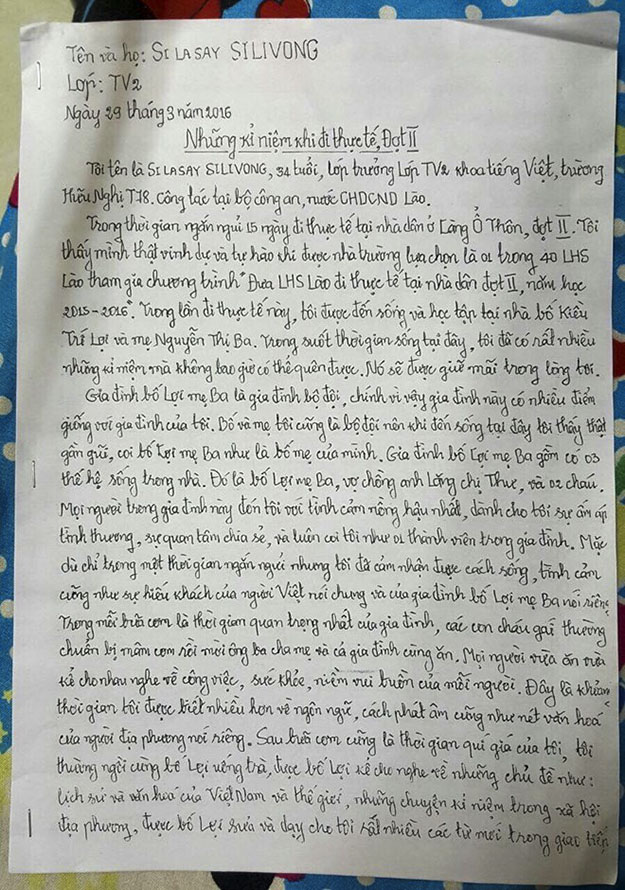 Tên và họ: SILASAY SILIVONG
Lớp: TV2
Ngày 29 tháng 3 năm 2016
Những kỉ niệm khi đi thực tế, Đợt II
Tôi tên là SILASAY SILIVONG, 34 tuổi, lớp trưởng lớp TV2 khoa tiếng Việt, trường
Hữu Nghị T78. Công tác tại bộ công an, nước CHDCND Lào.
Trong thời gian ngắn ngủi 15 ngày đi thực tế tại nhà dân ở Làng Ổ Thôn, đợt II. Tôi
thấy mình thật vinh dự và tự hào khi được nhà trường lựa chọn là 01 trong 40 LHS
Lào tham gia chương trình "Đưa LHS Lào đi thực tế tại nhà dân đợt II, năm học
2015-2016". Trong lần đi thực tế này, tôi được đến sống và học tập tại nhà bố Kiều
Trí Lợi và mẹ Nguyễn Thị Ba. Trong suốt thời gian sống tại đây, tôi đã có rất nhiều
những kỉ niệm mà không bao giờ có thể quên được. Nó sẽ được giữ mãi trong lòng tôi.
Gia đình bố Lợi mẹ Ba là gia đình bộ đội, chính vì vậy gia đình này có nhiều điểm
giống với gia đình của tôi. Bố và mẹ tôi cũng là bộ đội nên khi đến sống tại đây tôi thấy thật
gần gũi, coi bố Lợi mẹ Ba như là bố mẹ của mình. Gia đình bố Lợi mẹ Ba gồm có 03
thế hệ sống trong nhà. Đó là bố Lợi mẹ Ba, vợ chồng anh Lăng chị Thư, và 02 cháu.
Mọi người trong gia đình này đón tôi với tình cảm nồng hậu nhất, dành cho tôi sự ấm áp
tình thương, sự quan tâm chia sẻ, và luôn coi tôi như 01 thành viên trong gia đình. Mặc
dù chỉ trong một thời gian ngắn ngủi nhưng tôi đã cảm nhận được cách sống, tình cảm
cũng như sự hiếu khách của người Việt nói chung và của gia đình bố Lợi mẹ Ba nói riêng
Trong mỗi bữa cơm là thời gian quan trọng nhất của gia đình, các con cháu gái thường
chuẩn bị mâm cơm rồi mời ông bà cha mẹ và cả gia đình cùng ăn. Mọi người vừa ăn vừa
kể cho nhau nghe về công việc, sức khỏe, niệm vui buồn của mỗi người. Đây là khoảng
thời gian tôi được biết nhiều hơn về ngôn ngữ, cách phát âm cũng như nét văn hoá
của người địa phương nói riêng. Sau bữa cơm cũng là thời gian quí giá của tôi, tôi
thường ngồi cùng bố Lợi uống trà, được bố Lợi kể cho nghe về những chủ đề như:
lịch sử và văn hoá của Việt Nam và thế giới, những chuyện kỉ niệm trong xã hội
địa phương, được bố Lợi sửa và dạy cho tôi rất nhiều các từ mới trong giao tiếp